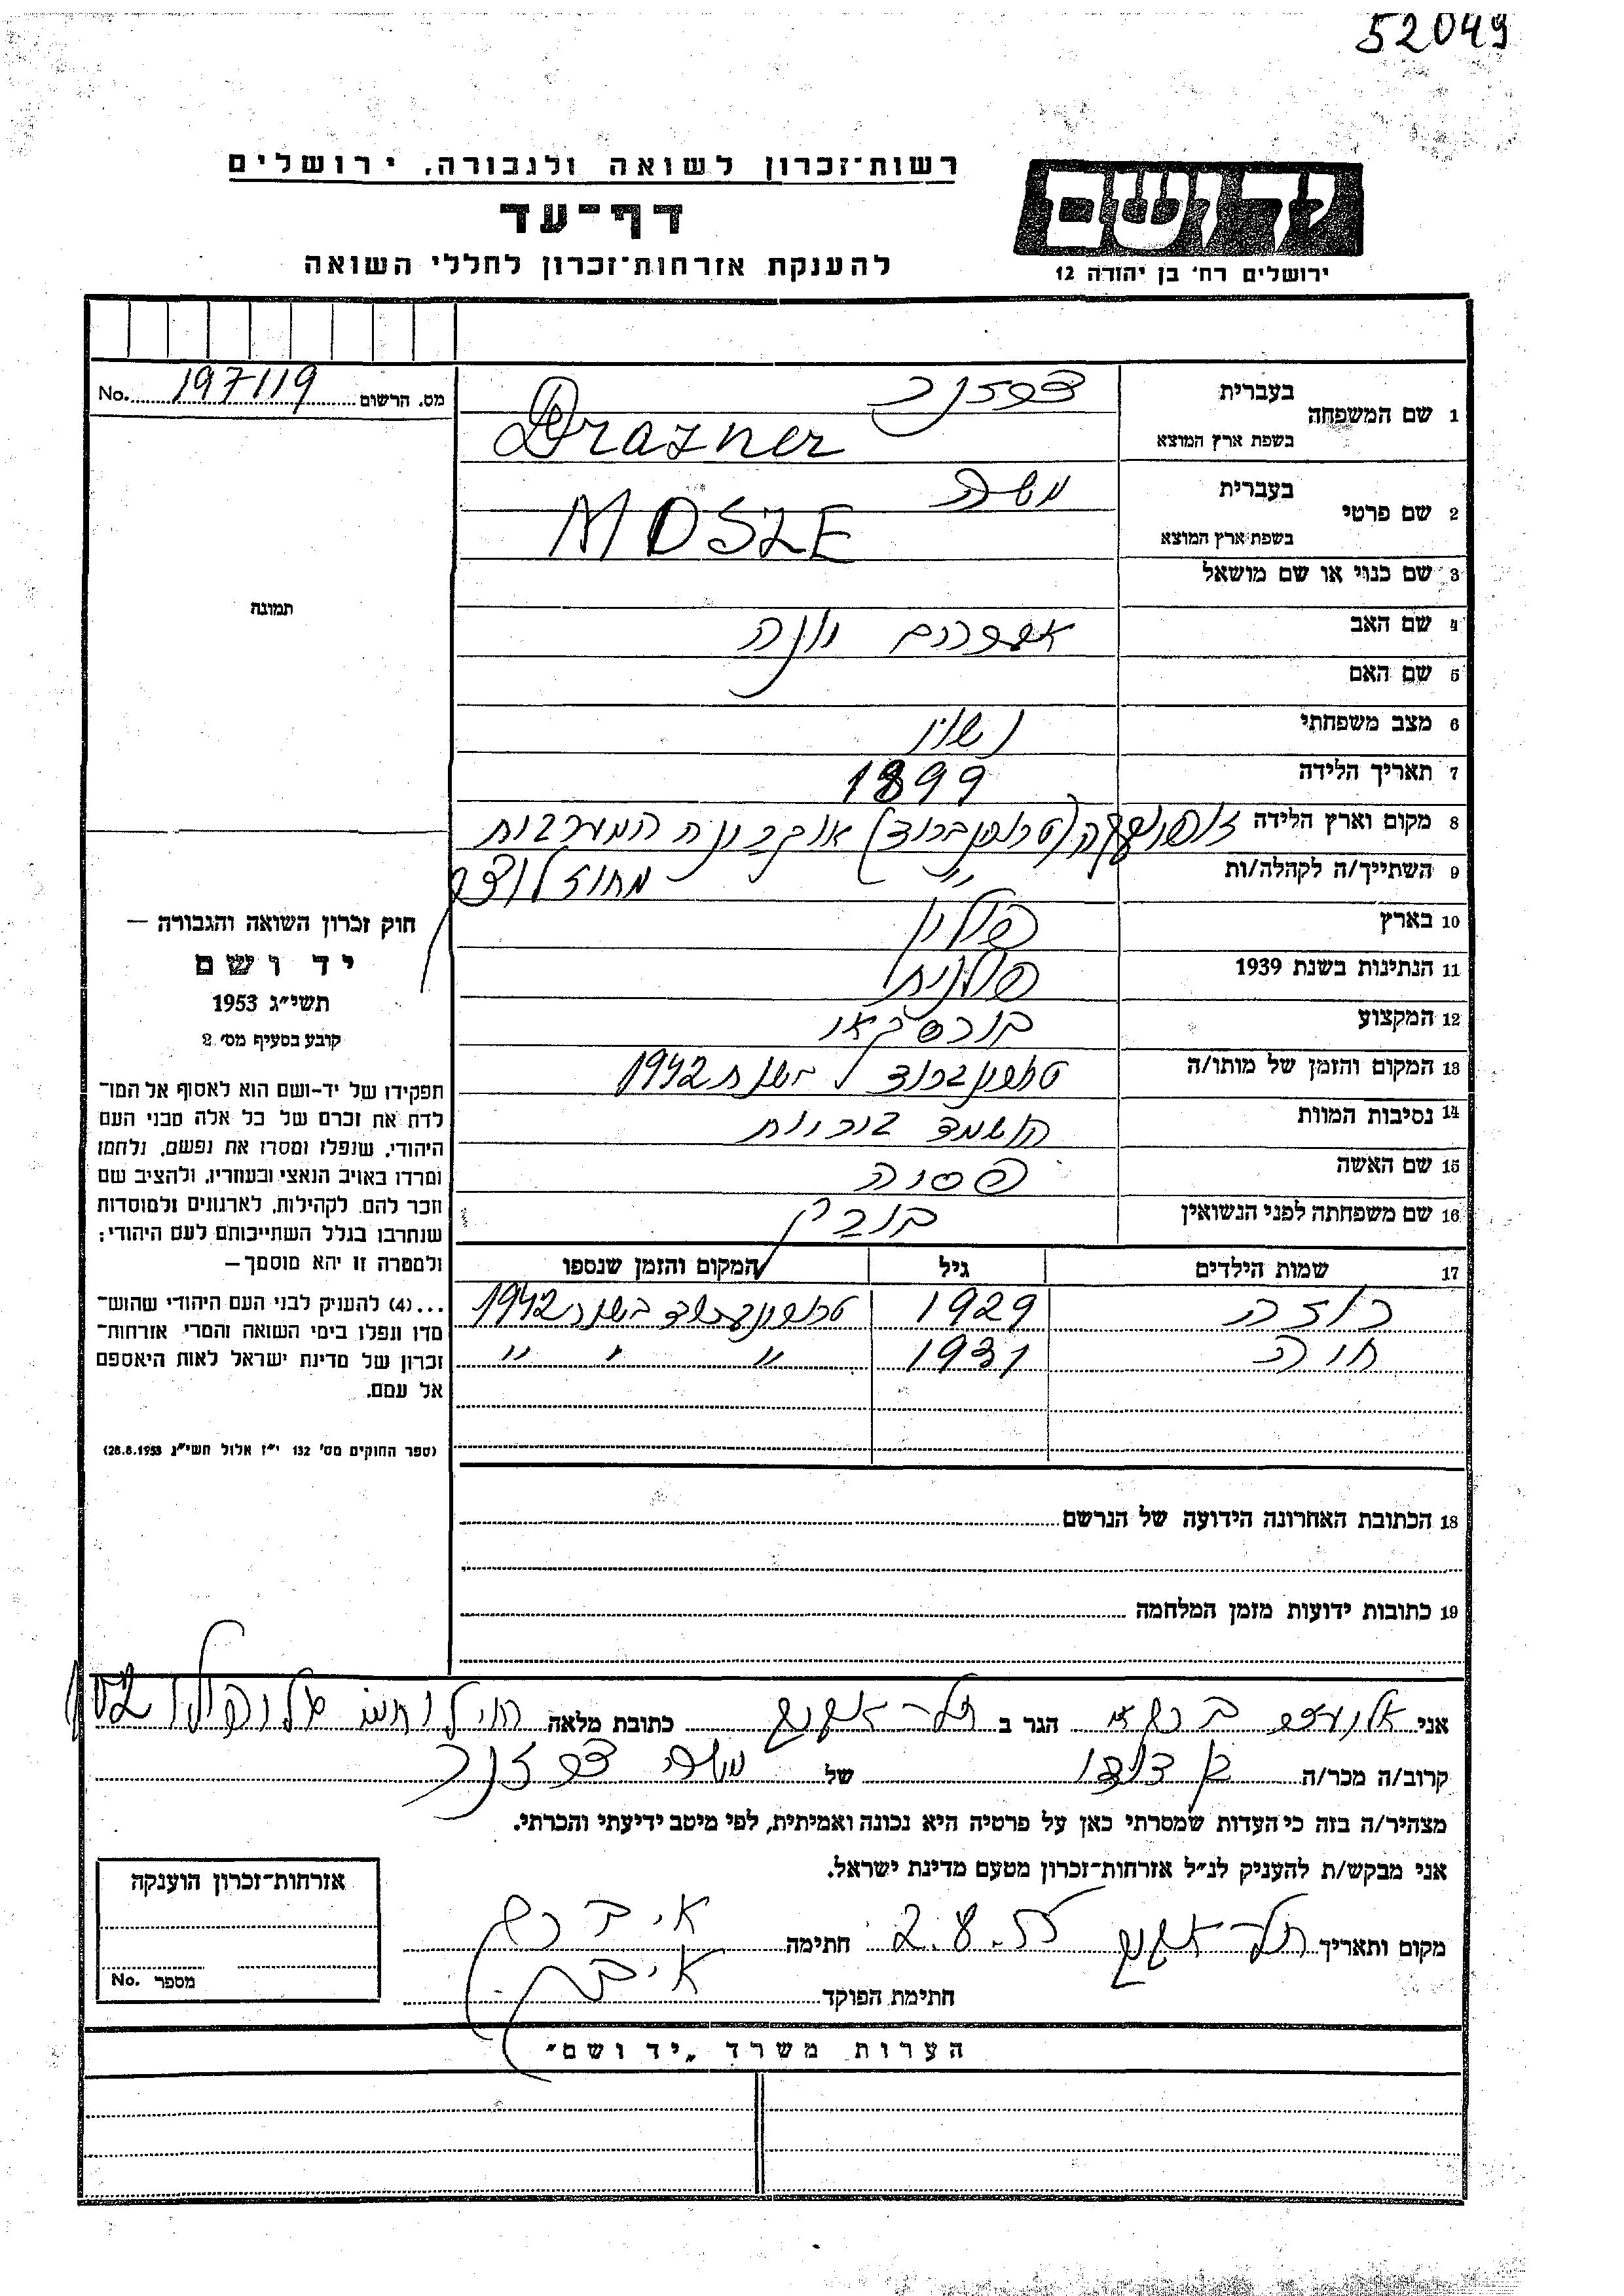 52049
רשות־זכרון לשואה ולגבורה, ירושלים
דף־עד
להענקת אזרחות־זכרון לחללי השואה
יד ושם
ירושלים רח׳ בן יהודה 12
מס. הרשום 197119 No.
1 שם המשפחה
בעברית דרזנר
בשפת ארץ המוצא Drazner
2 שם פרטי
בעברית משה
בשפת ארץ המוצא MOSZE
3 שם כנוי או שם מושאל
4 שם האב אפרים יונה
5 שם האם
6 מצב משפחתי נשוי
7 תאריך הלידה 1899
8 מקום וארץ הלידה (טרוכנברוד) אוקרינה המערבית
9 השתייך/ה לקהלה/ות " מחוז לוצק
10 בארץ פולין
11 הנתינות בשנת 1939 פולנית
12 המקצוע בורסקאי
13 המקום והזמן של מותו/ה בשנת 1942
14 נסיבות המוות הושמד
15 שם האשה פסיה
16 שם משפחתה לפני הנשואין
17 שמות הילדים גיל המקום והזמן שנספו
רוזה 1929 בשנת 1942
חיה 1931 " " "
18 הכתובת האחרונה הידועה של הנרשם
19 כתובות ידועות מזמן המלחמה
תמונה
חוק זכרון השואה והגבורה —
יד ושם
תשי״ג 1953
קובע בסעיף מס׳ 2
תפקידו של יד-ושם הוא לאסוף אל המו־
לדת את זכרם של כל אלה מבני העם
היהודי, שנפלו ומסרו את נפשם, נלחמו
ומרדו באויב הנאצי ובעוזריו, ולהציב שם
וזכר להם, לקהילות, לארגונים ולמוסדות
שנחרבו בגלל השתייכותם לעם היהודי;
ולמטרה זו יהא מוסמך—
...(4) להעניק לבני העם היהודי שהוש־
מדו ונפלו בימי השואה והמרי אזרחות־
זכרון של מדינת ישראל לאות היאספם
אל עמם.
(ספר החוקים מס׳ 132 י״ז אלול תשי״ג 28.8.1953)
אני הגר ב תל-אביב כתובת מלאה
קרוב/ה מכר/ה בן דודו של משה דרזנר
מצהיר/ה בזה כי העדות שמסרתי כאן על פרטיה היא נכונה ואמיתית, לפי מיטב ידיעתי והכרתי.
אני מבקש/ת להעניק לנ״ל אזרחות-זכרון מטעם מדינת ישראל.
מקום ותאריך תל-אביב 2.8.55 חתימה
חתימת הפוקד
אזרחות-זכרון הוענקה
מספר No.
הערות משרד „יד ושם״